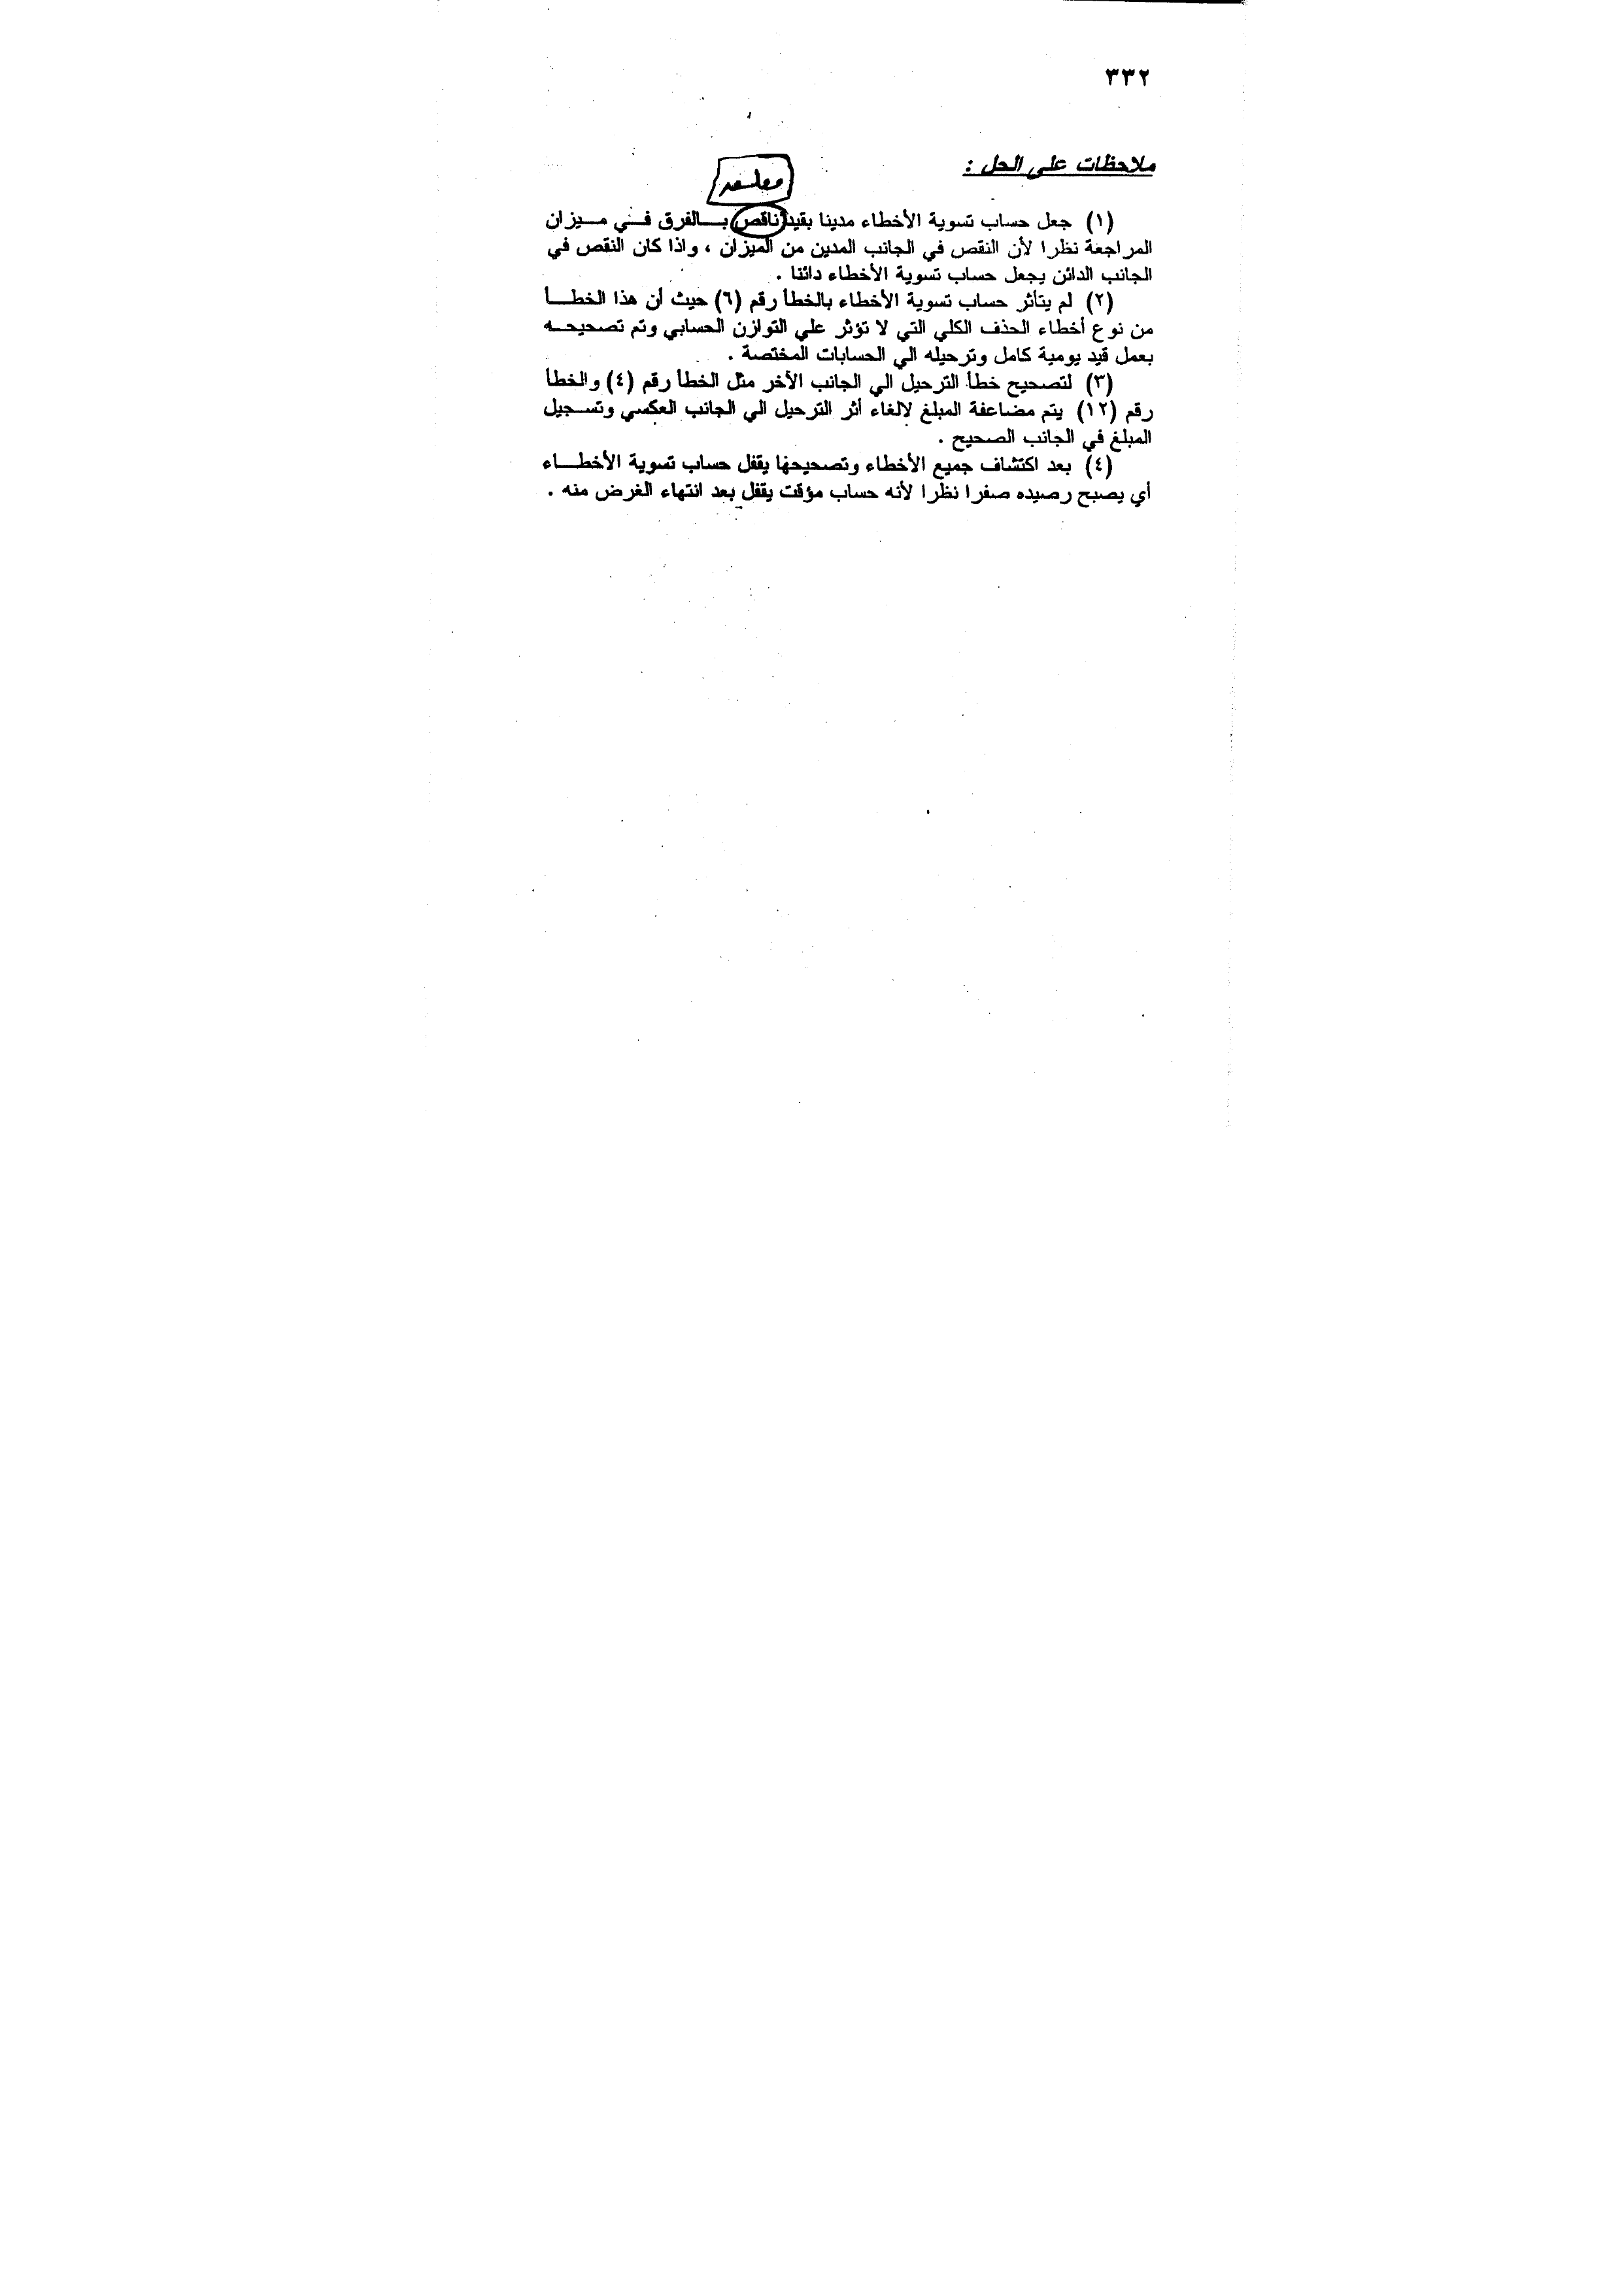 ٣٣٢
ملاحظات على الحل :
(١) جعل حساب تسوية الأخطاء مدينا بقيد ناقص بالفرق في ميزان
المراجعة نظرا لأن النقص في الجانب المدين من الميزان ، واذا كان النقص في
الجانب الدائن يجعل حساب تسوية الأخطاء دائنا .
(٢) لم يتأثر حساب تسوية الأخطاء بالخطأ رقم (٦) حيث أن هذا الخطأ
من نوع أخطاء الحذف الكلي التي لا تؤثر علي التوازن الحسابي وتم تصحيحه
بعمل قيد يومية كامل وترحيله الي الحسابات المختصة .
(٣) لتصحيح خطأ الترحيل الي الجانب الأخر مثل الخطأ رقم (٤) والخطأ
رقم (١٢) يتم مضاعفة المبلغ لالغاء أثر الترحيل الي الجانب العكسي وتسجيل
المبلغ في الجانب الصحيح .
(٤) بعد اكتشاف جميع الأخطاء وتصحيحها يقفل حساب تسوية الأخطاء
أي يصبح رصيده صفرا نظرا لأنه حساب مؤقت يقفل بعد انتهاء الغرض منه .